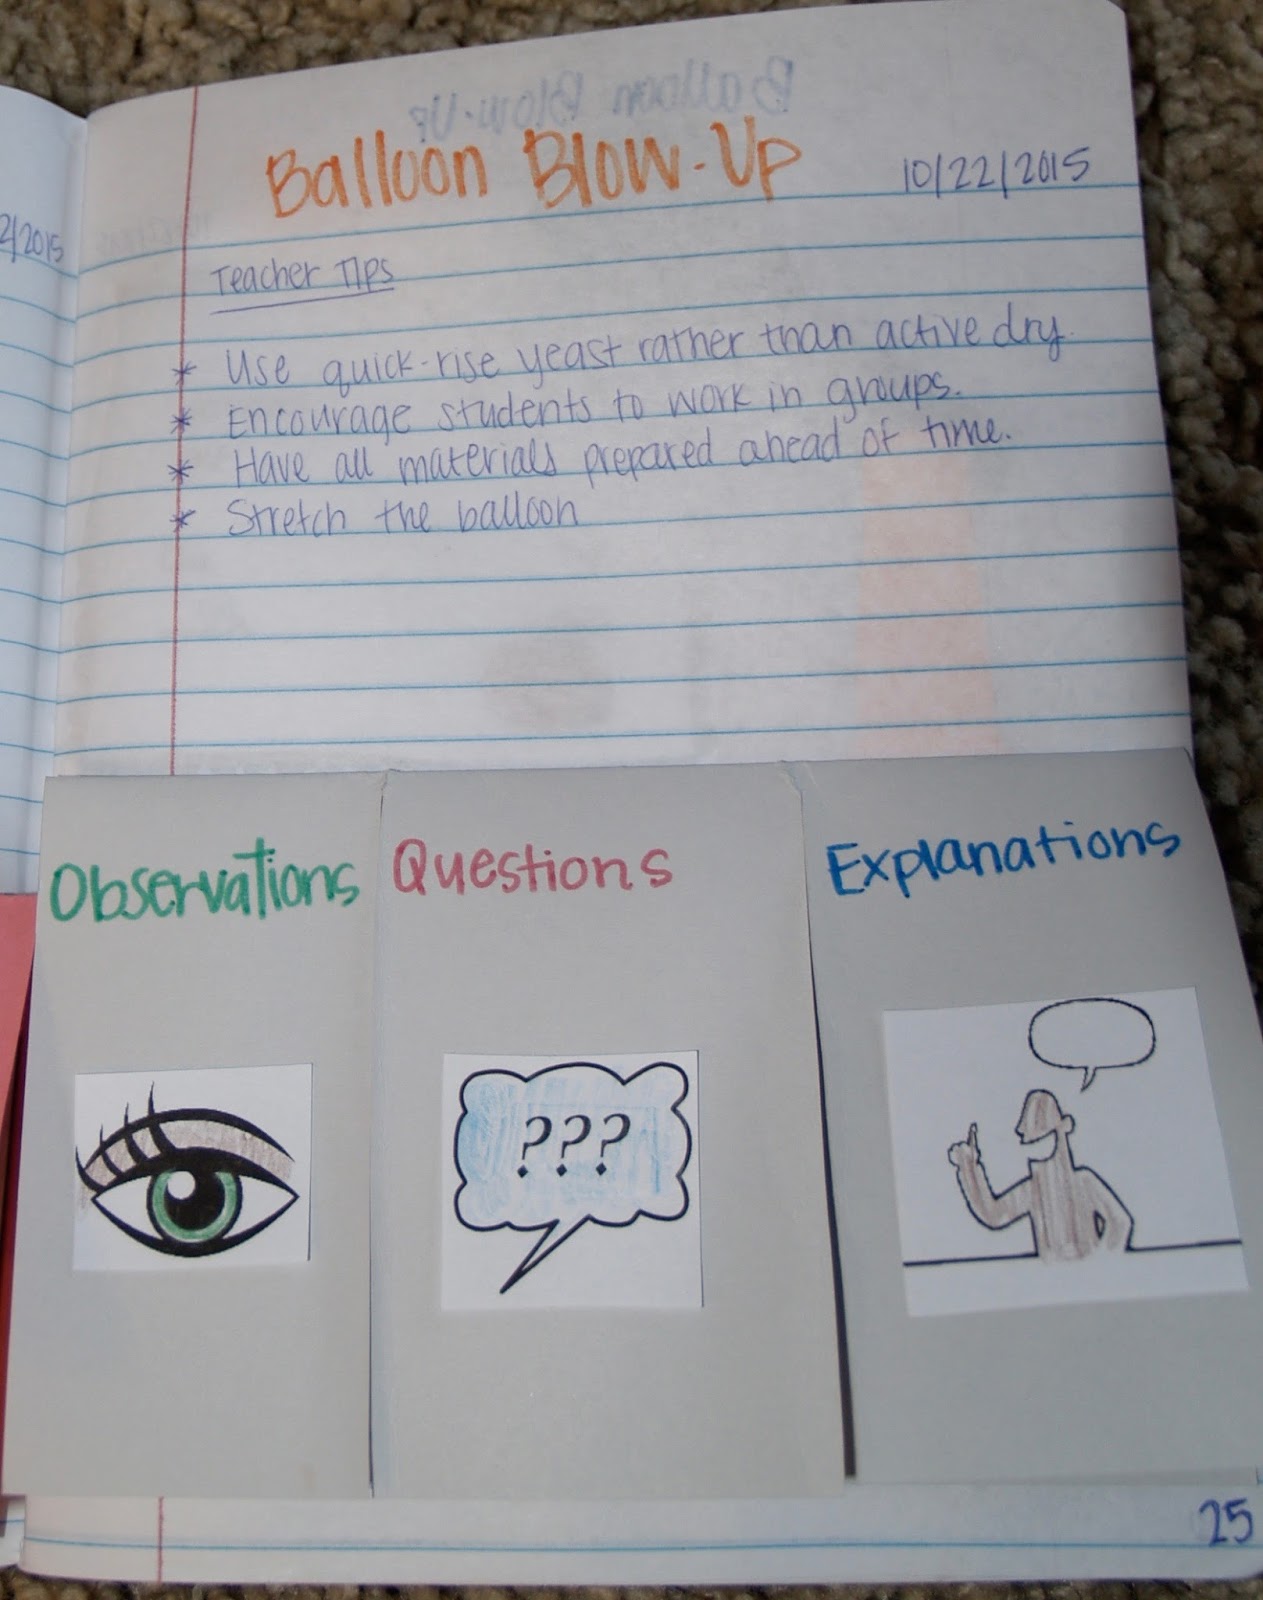 Balloon Blow-Up
Balloon Blow-Up 10/22/2015
2/2015
Teacher Tips
* Use quick-rise yeast rather than active dry.
* Encourage students to work in groups.
* Have all materials prepared ahead of time.
* Stretch the balloon
Observations Questions Explanations
???
25